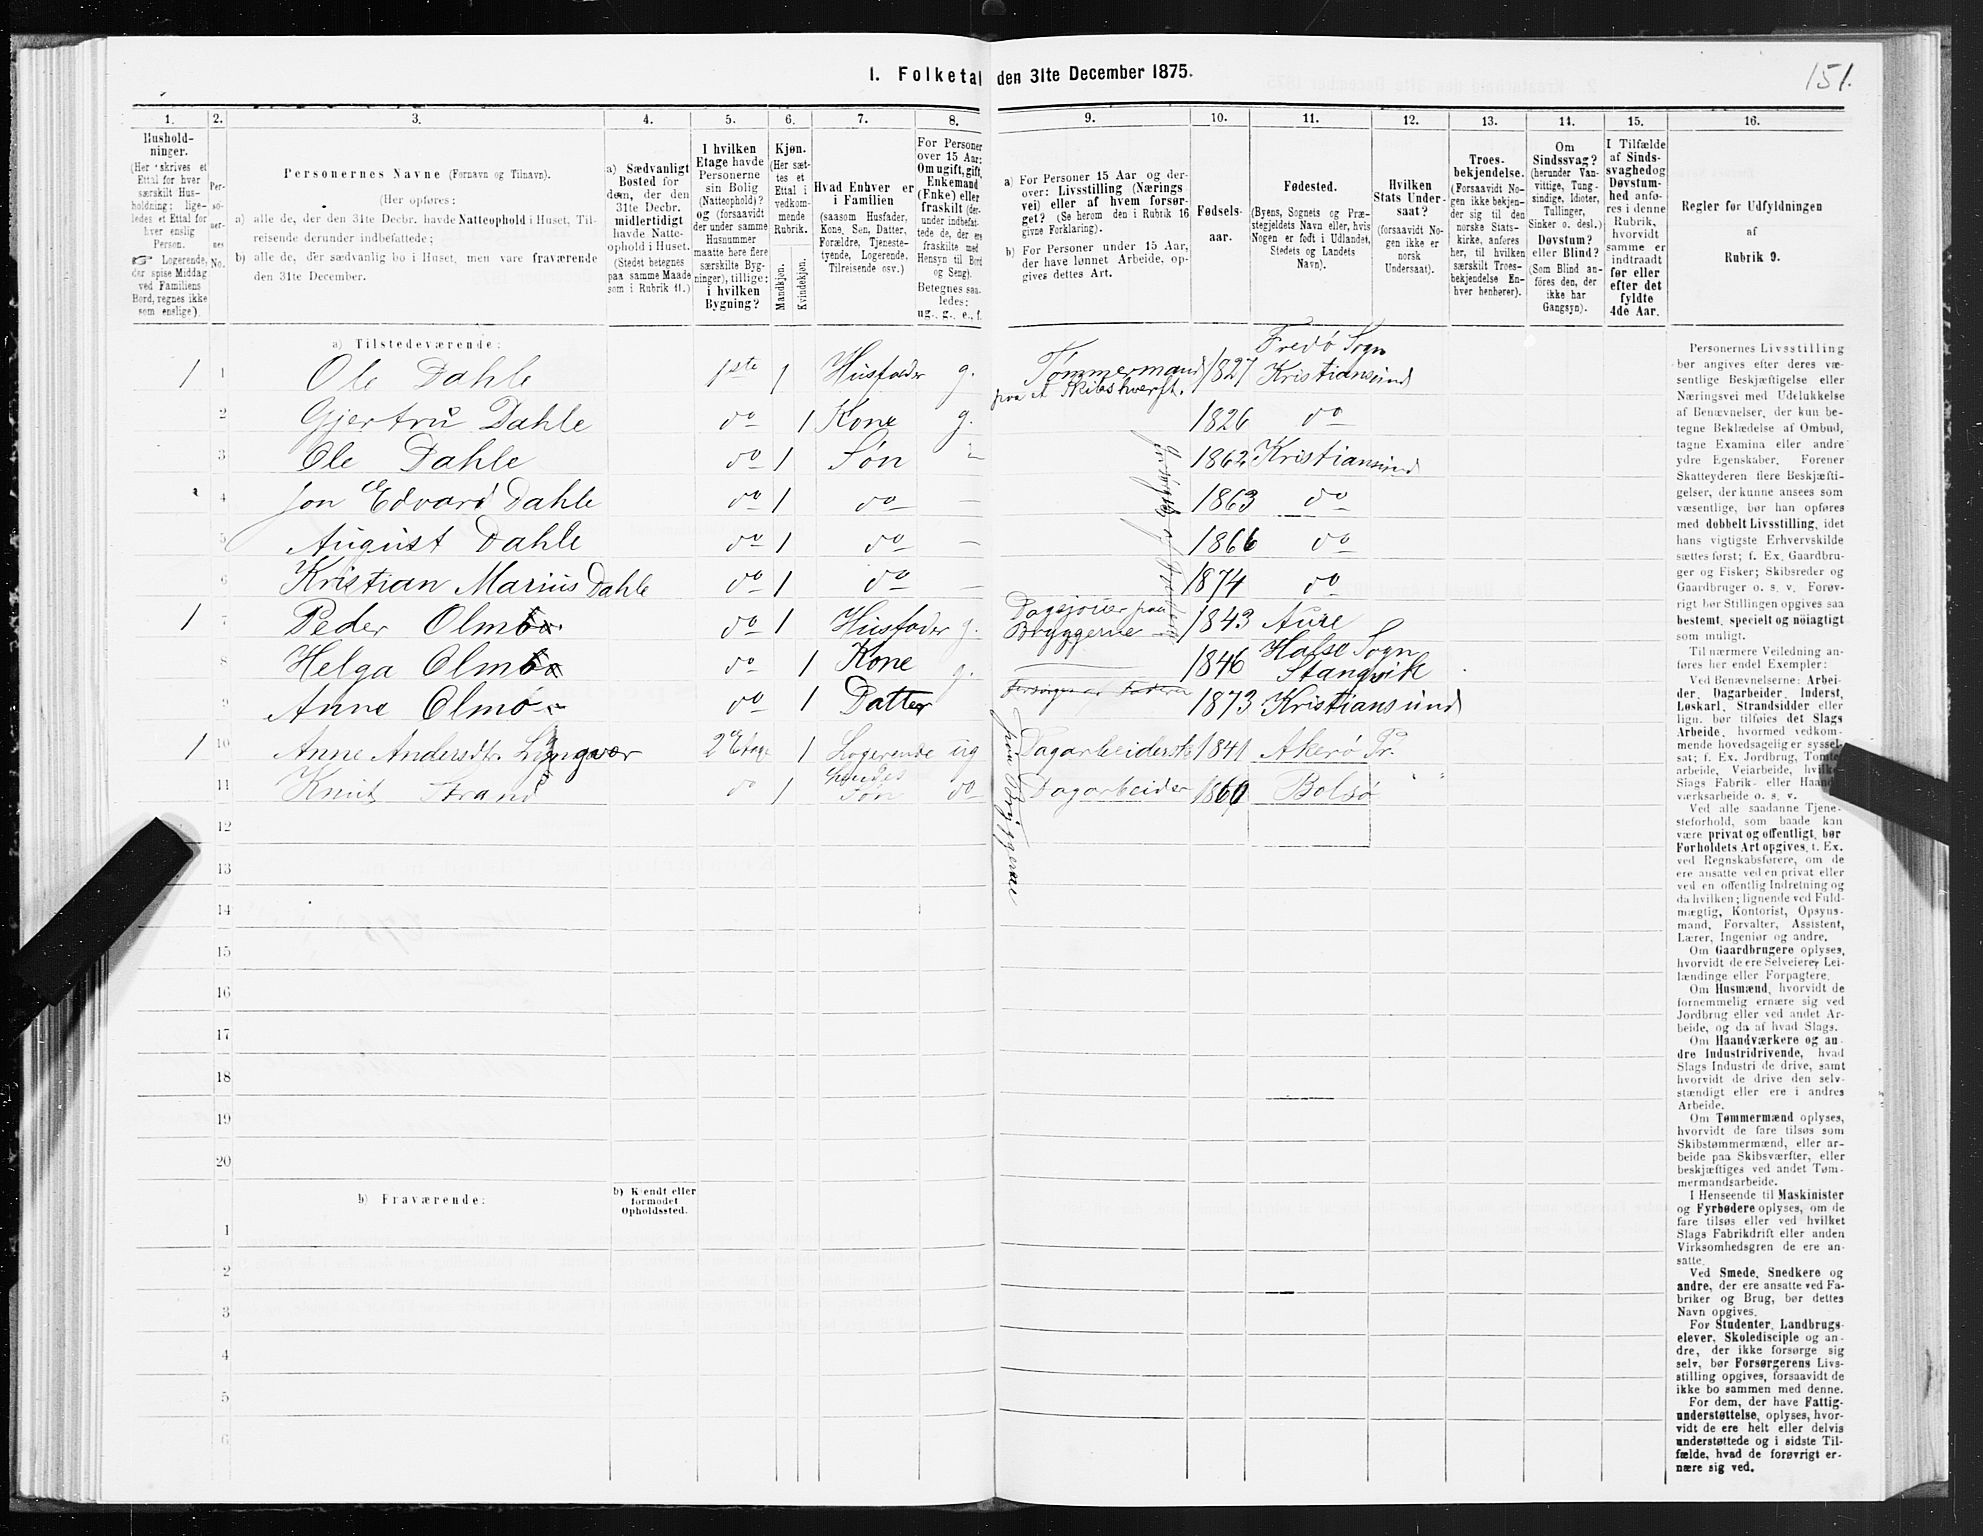 I. Folketal den 31te December 1875.
151.
1.
2.
3.
4.
5.
6.
7.
8.
9.
10.
11.
12.
13.
14.
15.
16.
Hushold-
ninger.
(Her skrives et
Ettal for hver
særskilt Hus-
holdning; lige-
ledes et Ettal for
hver enslig
Person.
☞ Logerende,
der spise Middag
ved Familiens
Bord, regnes ikke
som enslige).
Per-
so-
ner-
nes
No.
Personernes Navne (Fornavn og Tilnavn).
(Her opføres:
a) alle de, der den 31te Decbr. havde Natteophold i Huset, Til-
reisende derunder indbefattede;
b) alle de, der sædvanlig bo i Huset, men vare fraværende
den 31te December.
a) Sædvanligt
Bosted for
dem, der den
31te Decbr.
midlertidigt
havde Natte-
ophold i Huset.
(Stedet betegnes
paa samme Maade
som i Rubrik 11.)
I hvilken
Etage havde
Personerne
sin Bolig
(Natteophold)?
og (forsaavidt
der under samme
Husnummer
maatte høre flere
særskilte Byg-
ninger), tillige:
i hvilken
Bygning?
Kjøn.
(Her sæt-
tes et
Ettal i
vedkom-
mende
Rubrik.
Mandkjøn.
Kvindekjøn.
Hvad Enhver er
i Familien
(saasom Husfader,
Kone, Søn, Datter,
Forældre, Tjeneste-
tyende, Logerende,
Tilreisende osv.)
For Personer
over 15 Aar:
Om ugift, gift,
Enkemand
(Enke) eller
fraskilt (der-
under indbefat-
tede de, der ere
fraskilte med
Hensyn til Bord
og Seng).
Betegnes saa-
ledes:
ug., g., e., f.
a) For Personer 15 Aar og der-
over: Livsstilling (Nærings-
vei) eller af hvem forsør-
get? (Se herom den i Rubrik 16
givne Forklaring).
b) For Personer under 15 Aar,
der have lønnet Arbeide, op-
gives dettes Art.
Fødsels-
aar.
Fødested.
(Byens, Sognets og Præ-
stegjeldets Navn eller, hvis
Nogen er født i Udlandet,
Stedets og Landets
Navn).
Hvilken
Stats Under-
saat?
(forsaavidt No-
gen ikke er
norsk
Undersaat).
Troes-
bekjendelse.
(Forsaavidt No-
gen ikke bekjen-
der sig til den
norske Stats-
kirke, anføres
her, til hvilken
særskilt Troes-
bekjendelse En-
hver henhører).
Om
Sindssvag?
(herunder Van-
vittige, Tung-
sindige, Idioter,
Tullinger,
Sinker o. desl.)
Døvstum?
eller Blind?
(Som Blind an-
føres den, der
ikke har
Gangsyn).
I Tilfælde
af Sinds-
svaghed og
Døvstum-
hed anfø-
res i denne
Rubrik,
hvorvidt
samme er
indtraadt
før eller
efter det
fyldte
4de Aar.
Regler for Udfyldningen
af
Rubrik 9.
a) Tilstedeværende:
1 1 Ole Dahle 1ste 1 Husfader g. Tømmermand paa et Skibsværft. 1827 Fredø Sogn Kristiansund
2 Gjertru Dahle do 1 Kone g. 1826 do
3 Ole Dahle do 1 Søn 1862 Kristiansund
4 Jon Edvard Dahle do 1 do — 1863 do
5 August Dahle do 1 do — 1866 do
6 Kristian Marius Dahle do 1 do — 1874 do
1 7 Peder Olmø do 1 Husfader g. Dagsjouer paa Bryggerne 1843 Aure
8 Helga Olmø do 1 Kone g. 1846 Halse Sogn Stangvik
9 Anne Olmø do 1 Datter Forsørges af Faderen 1873 Kristiansund
1 10 Anne Andersdtr. Lyngvær 2 Etage 1 Logerende ug Dagarbeiderske 1841 Akerø Pr.
11 Knut Strand do 1 hendes Søn do Dagarbeider 1860 Bolsø " "
paa Bryggerne
12
13
14
15
16
17
18
19
20
b) Fraværende:
b) Kjendt eller
formodet
Opholdssted.
1
2
3
4
5
6
Personernes Livsstilling
bør angives efter deres væ-
sentlige Beskjæftigelse eller
Næringsvei med Udelukkelse
af Benævnelser, der kun be-
tegne Beklædelse af Ombud,
tagne Examina eller andre
ydre Egenskaber. Forener
Skatteyderen flere Beskjæfti-
gelser, der kunne ansees som
væsentlige, bør han opføres
med dobbelt Livsstilling, idet
hans vigtigste Erhvervskilde
sættes først; f. Ex. Gaardbru-
ger og Fisker; Skibsreder og
Gaardbruger o. s. v. Forøv-
rigt bør Stillingen opgives saa
bestemt, specielt og nøiagtigt
som muligt.
Til nærmere Veiledning an-
føres her endel Exempler:
Ved Benævnelserne: Arbei-
der, Dagarbeider, Inderst,
Løskarl, Strandsidder eller
lign. bør tilføies det Slags
Arbeide, hvormed vedkom-
mende hovedsagelig er syssel-
sat; f. Ex. Jordbrug, Tomte-
arbeide, Veiarbeide, hvilket
Slags Fabrik- eller Haand-
værksarbeide o. s. v.
Ved alle saadanne Tjene-
steforhold, som baade kan
være privat og offentligt, bør
Forholdets Art opgives, f. Ex.
ved Regnskabsførere, om de
ere ansatte ved en privat eller
ved en offentlig Indretning og
da hvilken; lignende ved Fuld-
mægtig, Kontorist, Opsyns-
mand, Forvalter, Assistent,
Lærer, Ingeniør og andre.
Om Gaardbrugere oplyses,
hvorvidt de ere Selveiere, Lei-
lændinge eller Forpagtere.
Om Husmænd, hvorvidt de
fornemmelig ernære sig ved
Jordbrug eller ved andet Ar-
beide, og da af hvad Slags.
Om Haandværkere og an-
dre Industridrivende, hvad
Slags Industri de drive, samt
hvorvidt de drive den selv-
stændigt eller ere i andres
Arbeide.
Om Tømmermænd oplyses,
hvorvidt de fare tilsøs som
Skibstømmermænd, eller ar-
beide paa Skibsværfter, eller
beskjæftiges ved andet Tøm-
mermandsarbeide.
I Henseende til Maskinister
og Fyrbødere oplyses, om de
fare tilsøs eller ved hvilket
Slags Fabrikdrift eller anden
Virksomhedsgren de ere an-
satte.
Ved Smede, Snedkere og
andre, der ere ansatte ved Fa-
briker og Brug, bør dettes
Navn opgives.
For Studenter, Landbrugs-
elever, Skoledisciple og an-
dre, der ikke forsørge sig
selv, bør Forsørgerens Livs-
stilling opgives, forsaavidt de
ikke bo sammen med denne.
For dem, der have Fattig-
understøttelse, oplyses, hvor-
vidt de ere helt eller delvis
understøttede og i sidste Til-
fælde, hvad de forøvrigt er-
nære sig ved.